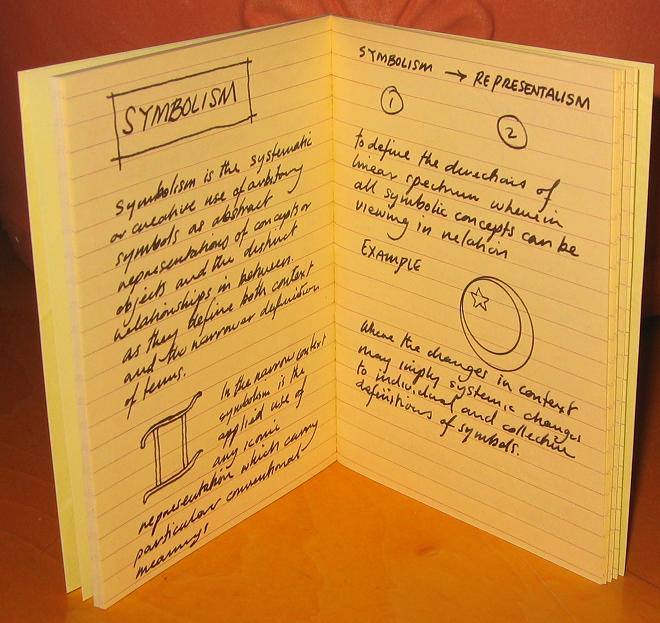 SYMBOLISM
Symbolism is the systematic
or creative use of arbitrary
symbols as abstract
representations of concepts or
objects and the distinct
relationships in between.
as they define both context
and the narrower definition
of terms.
In the narrow context
symbolism is the
applied use of
any iconic
representation which carry
particular conventional
meaning!
SYMBOLISM → REPRESENTALISM
1 2
to define the directions of
linear spectrum wherein
all symbolic concepts can be
viewing in relation
EXAMPLE
Where the changes in context
may imply systemic changes
to individual and collective
definitions of symbols.